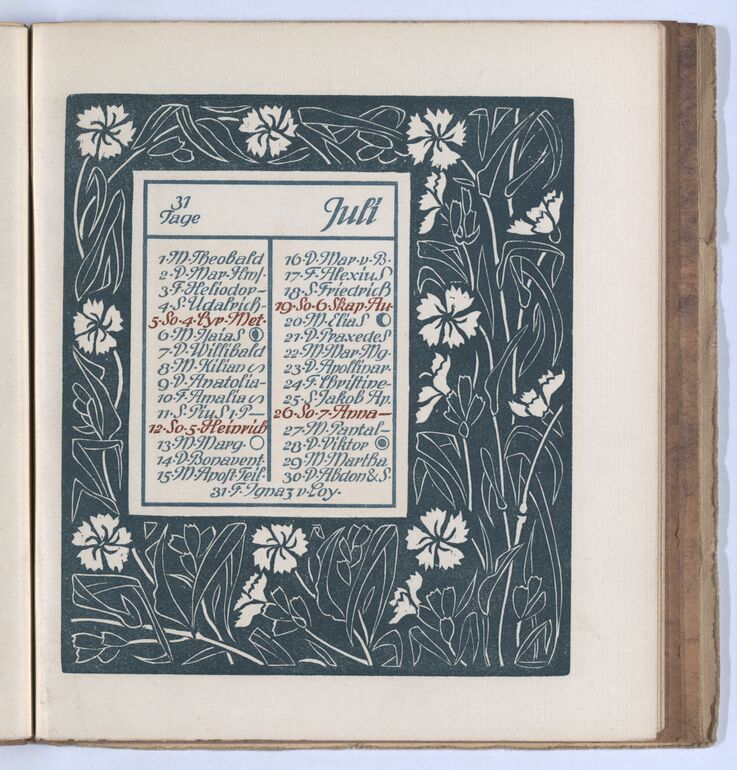 31
Tage
Juli
1·M·Theobald
2·D·Mar·Hms·
3·F·Heliodor—
4·S·Udalrich—
5·So·4·Cyr·Met·
6·M·Isaias
7·D·Willibald
8·M·Kilian
9·D·Anatolia—
10·F·Amalia
11·S·Pius 1·P—
12·So·5·Heinrich
13·M·Marg·
14·D·Bonavent·
15·M·Apost·Teil·
16·D·Mar·v·B·
17·F·Alexius
18·S·Friedrich
19·So·6·Skap·Au·
20·M·Elias
21·D·Praxedes
22·M·Mar·Mg·
23·D·Apollinar·
24·F·Christine·
25·S·Jakob Ap·
26·So·7·Anna—
27·M·Pantal—
28·D·Viktor
29·M·Martha
30·D·Abdon&S·
31·F·Ignaz v·Loy·